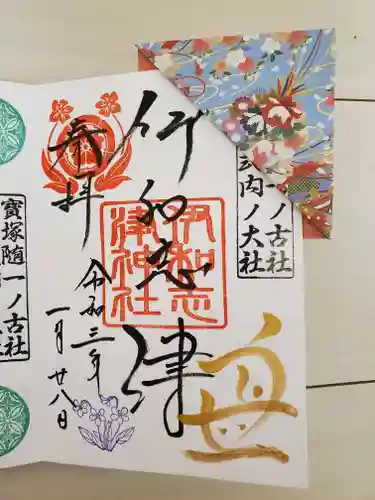 一ノ古社
式内ノ大社
丑
伊和志津
伊和志
津神社
奉拝
令和三年
一月廿八日
寶塚随一ノ古社